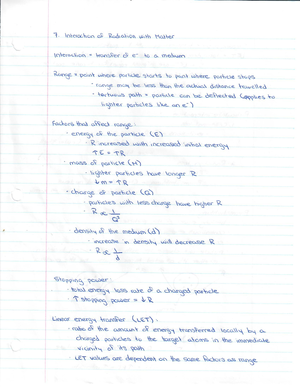 7. Interaction of Radiation with Matter
Interaction = transfer of e⁻ to a medium
Range = point where particle starts to point where particle stops
· range may be less than the actual distance travelled
· tortuous path = particle can be deflected (applies to
lighter particles like an e⁻)
Factors that affect range:
· energy of the particle (E)
· R increased with increased initial energy
↑E = ↑R
· mass of particle (M)
· lighter particles have longer R
↓m = ↑R
· charge of particle (Q)
· particles with less charge have higher R
· R ∝ 1/Q²
· density of the medium (d)
· increase in density will decrease R
R ∝ 1/d
Stopping power:
· total energy loss rate of a charged particle
· ↑ stopping power = ↓R
Linear energy transfer (LET):
· rate of the amount of energy transferred locally by a
charged particles to the target atoms in the immediate
vicinity of its path
· LET values are dependent on the same factors as range